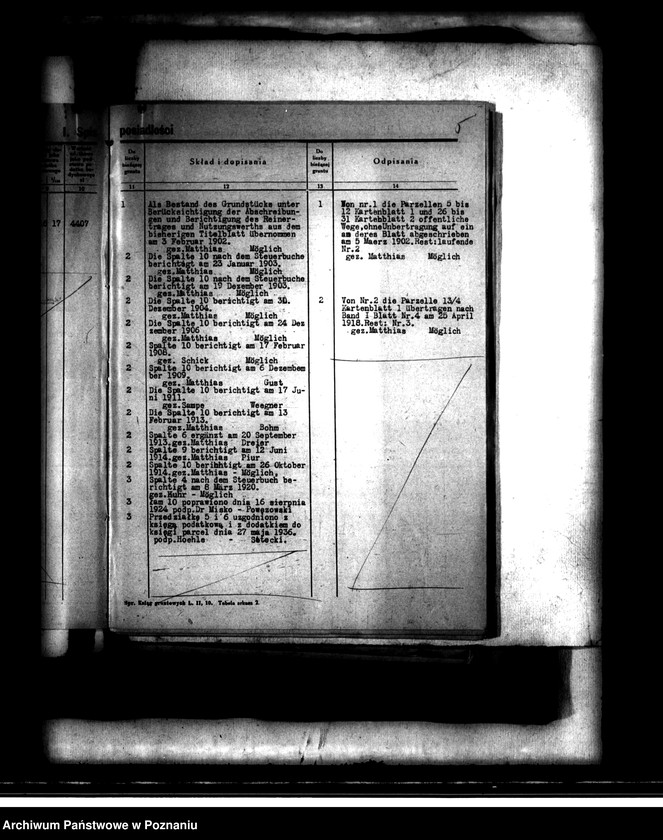 posiadłości
5
Do liczby bieżącej gruntu
Skład i dopisania
Do liczby bieżącej gruntu
Odpisania
11
12
13
14
17 4407
1 Als Bestand des Grundstücks unter
Berücksichtigung der Abschreibun-
gen und Berichtigung des Reiner-
trages und Nutzungswerths aus dem
bisherigen Titelblatt übernommen
am 3 Februar 1902.
gez.Matthias Möglich
2 Die Spalte 10 nach dem Steuerbuche
berichtagt am 23 Januar 1903.
gez.Matthias Möglich
2 Die Spalte 10 nach dem Steuerbuche
berichtigt am 19 Dezember 1903.
gez.Matthias Möglich
2 Die Spalte 10 berichtigt am
Dezember 1904.
gez.Matthias Möglich
2 Die Spalte 10 berichtigt am 24 Dez
zember 1906
gez.Matthias Möglich
2 Spalte 10 berichtigt am 17 Februar
1908.
gez. Schick Möglich
2 Spalte 10 berichtigt am 6 Dezembem
ber 1909.
gez. Matthias Gust
2 Die Spalte 10 berichtigt am 17 Ju-
ni 1911.
gez.Sampe Weegner
2 Die Spalte 10 berichtigt am 13
Februar 1913.
gez.Matthias Bohm
2 Spalte 6 ergänzt am 20 September
1913.gez.Matthias Dreier
2 Spalte 9 berichtigt am 12 Juni
1914.gez.Matthias Piur
2 Spalte 10 berihhtigt am 26 Oktober
1914.gez.Matthias - Möglich.
3 Spalte 4 nach dem Steuerbuch be-
richtigt am 8 März 1920.
gez.Huhr - Möglich
3 Łam 10 poprawiono dnia 16 sierpnia
1924 podp.Dr Misko - Powęzowski
3 Przedziałkę 5 i 6 uzgodniono z
księgą podatkową i z dodatkiem do
księgi parcel dnia 27 maja 1936.
podp.Hoehle - Sałecki.
1 Mon nr.1 die Parzellen 5 bis
12 Kartenblatt 1 und 26 bis
31 Kartebblatt 2 öffentliche
Wege,ohneUnbertragung auf ein
am deres Blatt abgeschrieben
am 5 Maerz 1902.Rest:laufende
Nr.2
gez. Matthias Möglich
2 Von Nr.2 die Parzelle 13/4
Kartenblatt 1 übertragen nach
Band I Blatt Nr.4 am 25 April
1918.Rest: Nr.3.
gez.Matthias Möglich
Spr. Ksiąg gruntowych L. 11, 10. Tabela arkusz 2.
Archiwum Państwowe w Poznaniu